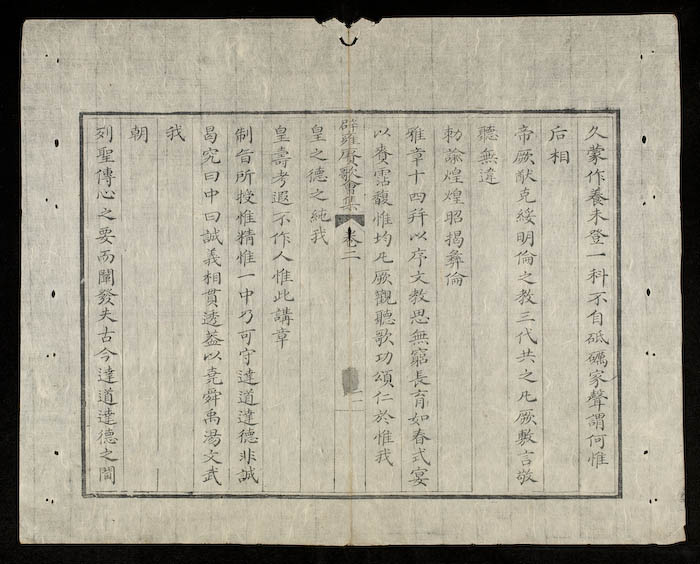 久蒙作養未登一科不自砥礪家聲謂何惟
后相
帝厥猷克綏明倫之教三代共之凡厥敷言敬
聽無違
勅諭煌煌昭揭彝倫
雅章十四并以序文教思無窮長育如春式宴
以賚霑馥惟均凡厥觀聽歌功頌仁於惟我
辟雍賡歌會集 卷二
皇之德之純我
皇壽考遐不作人惟此講章
制旨所授惟精惟一中乃可守達道達德非誠
曷究曰中曰誠義相貫透蓋以堯舜禹湯文武
我
朝
列聖傳心之要而闡發夫古今達道達德之閫